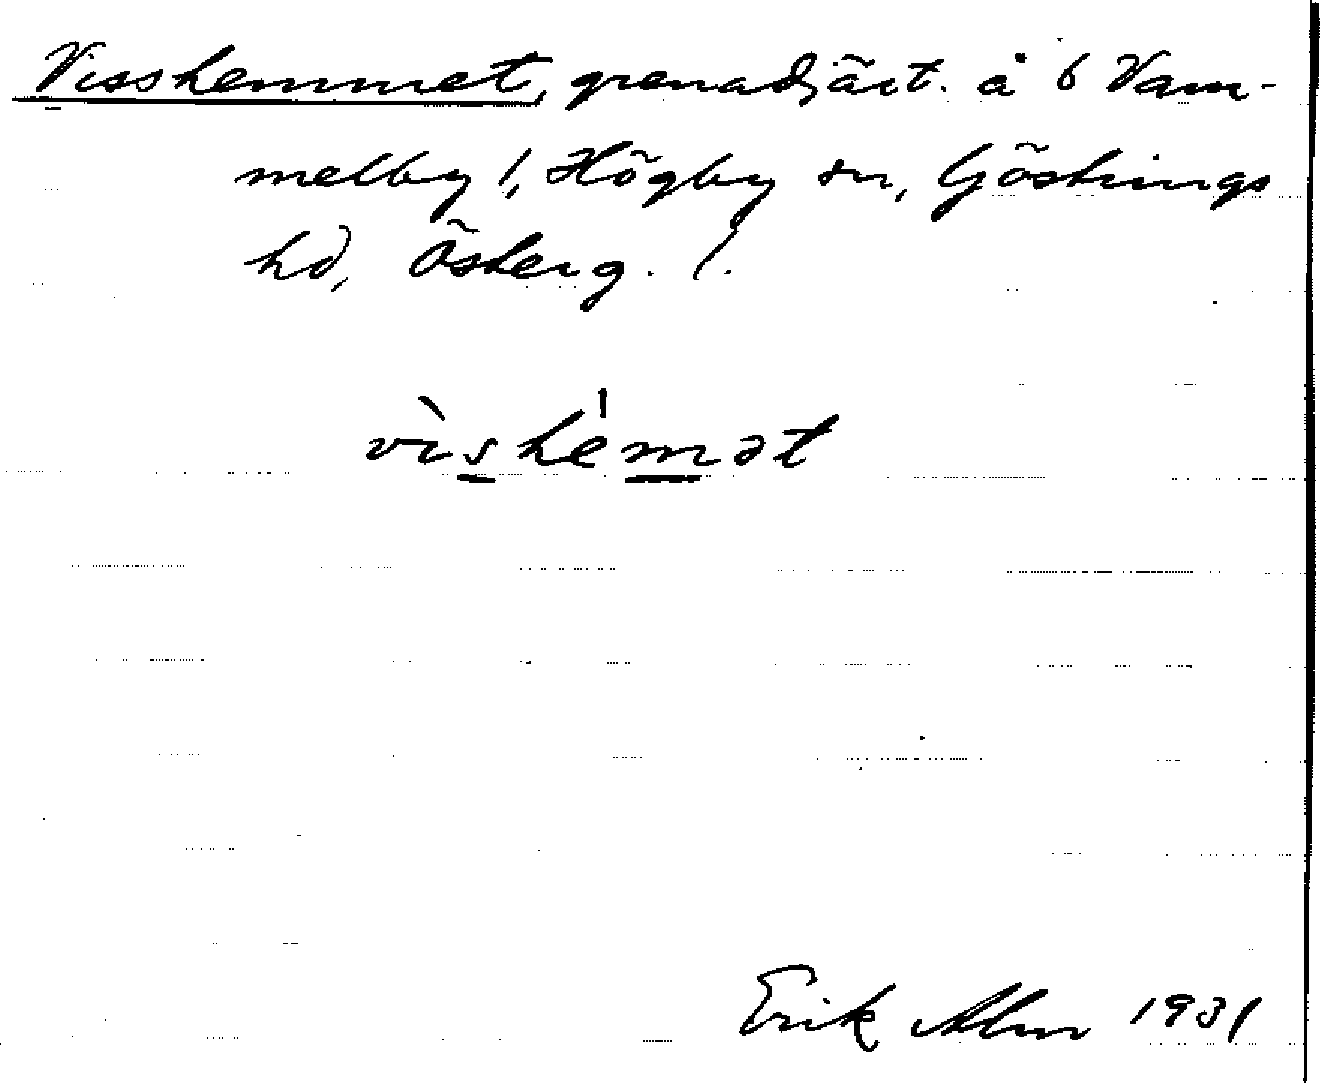 Visshemmet, grenadjärt. å 6 Vam-
melby 1, Högby sn, Göstrings
hd, Österg. l.
vìshémət
Erik Alm 1931